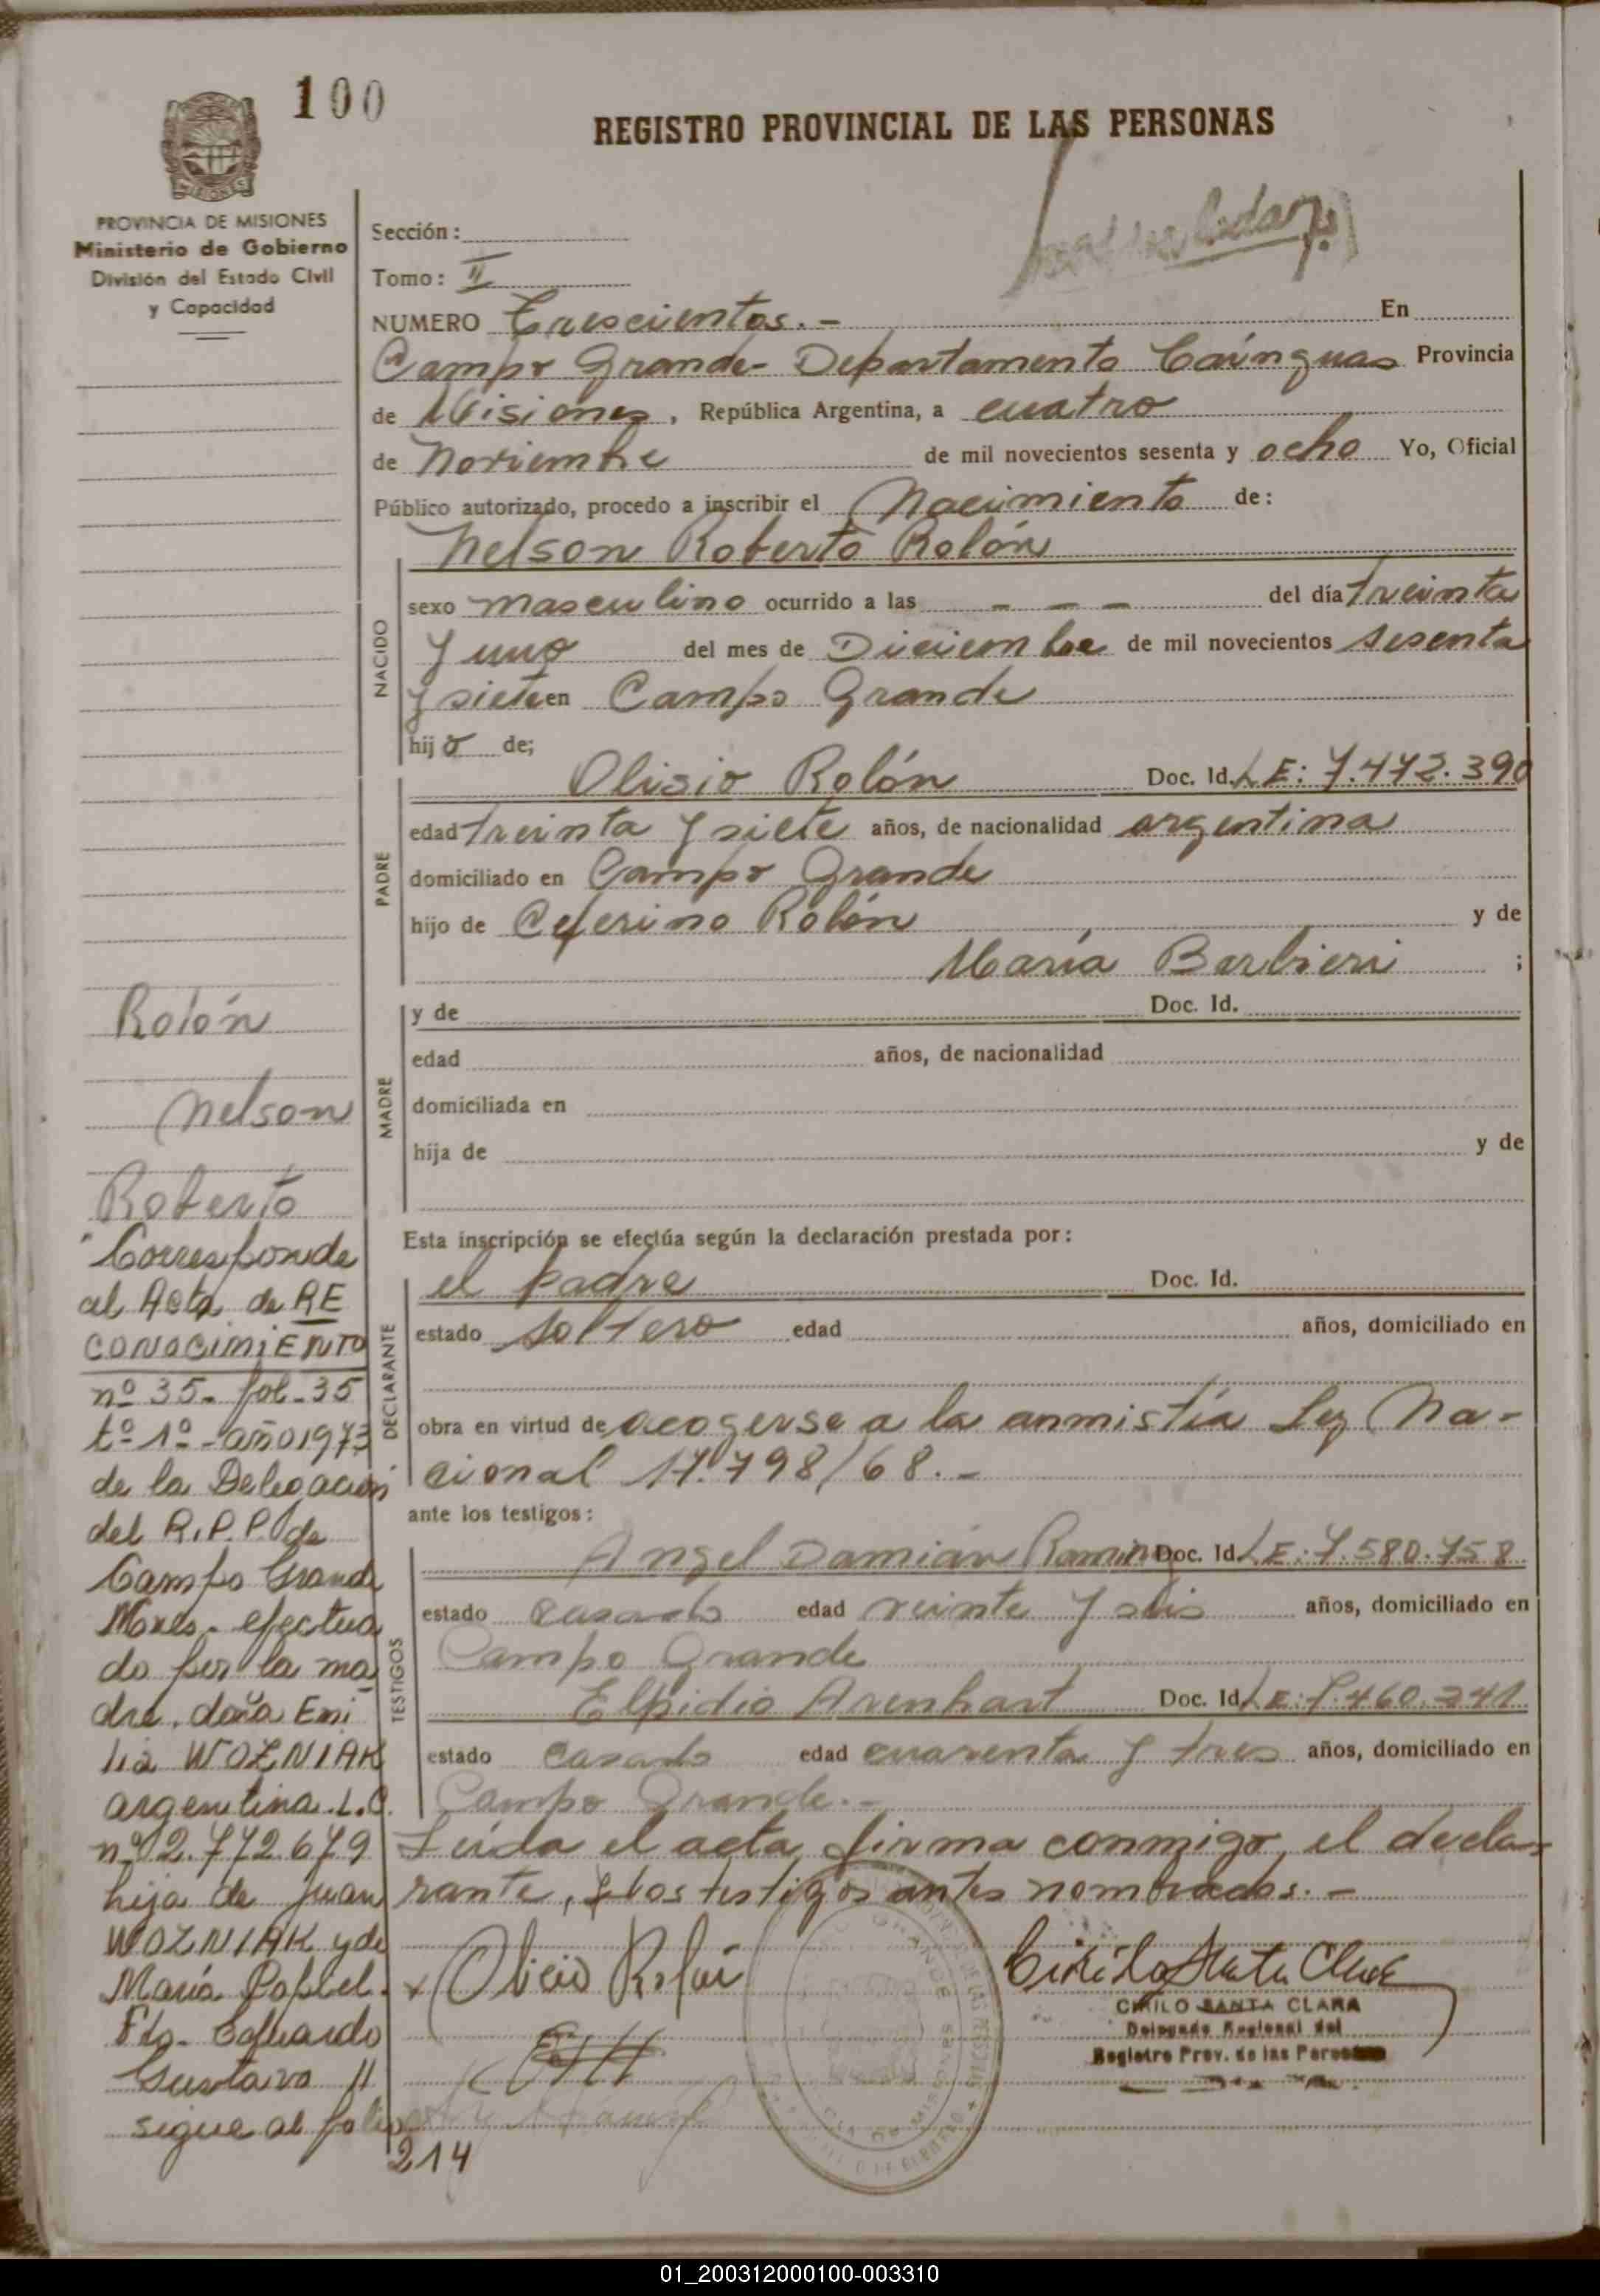 100
REGISTRO PROVINCIAL DE LAS PERSONAS
MISIONES
PROVINCIA DE MISIONES
Ministerio de Gobierno
División del Estado Civil
y Capacidad
Sección:
Tomo: II
NUMERO Trescientos.- En
Campo Grande- Departamento Cainguas Provincia
de Misiones, República Argentina, a cuatro
de Noviembre de mil novecientos sesenta y ocho Yo, Oficial
Público autorizado, procedo a inscribir el Nacimiento de:
Nelson Roberto Rolón
NACIDO
sexo masculino ocurrido a las - - - del día treinta
y uno del mes de Diciembre de mil novecientos sesenta
y siete en Campo Grande
hijo de;
PADRE
Olisio Rolón Doc. Id. LE: 7.472.390
edad treinta y siete años, de nacionalidad argentina
domiciliado en Campo Grande
hijo de Ceferino Rolón y de
María Barbieri ;
MADRE
y de Doc. Id.
edad años, de nacionalidad
domiciliada en
hija de y de
Esta inscripción se efectúa según la declaración prestada por:
DECLARANTE
el padre Doc. Id.
estado soltero edad años, domiciliado en
obra en virtud de acogerse a la anmistía Ley Na-
cional 17.798/68.-
ante los testigos:
TESTIGOS
Angel Damián Doc. Id. LE: 7.580.758
estado casado edad veinte y seis años, domiciliado en
Campo Grande
Elpidio Arenhart Doc. Id. LE: 7.460.241
estado casado edad cuarenta y tres años, domiciliado en
Campo Grande.-
Leída el acta, firma conmigo, el decla-
rante, y los testigos antes nombrados.-
Olicio Rolón
Cirilo Santa Clara
CIRILO SANTA CLARA
Delegado Regional del
Registro Prov. de las Personas
Rolón
Nelson
Roberto
Corresponde
al Acta de RE
CONOCIMIENTO
nº 35- fol-35
tº 1º-año 1973
de la Delegación
del R.P.P. de
Campo Grande
Mnes. efectua
do por la ma
dre, doña Emi
lia WOZNIAK
argentina. L.C.
nº 2.772.679
hija de Juan
WOZNIAK y de
María
Fdo.
Gustavo //
sigue al folio
214
01_200312000100-003310